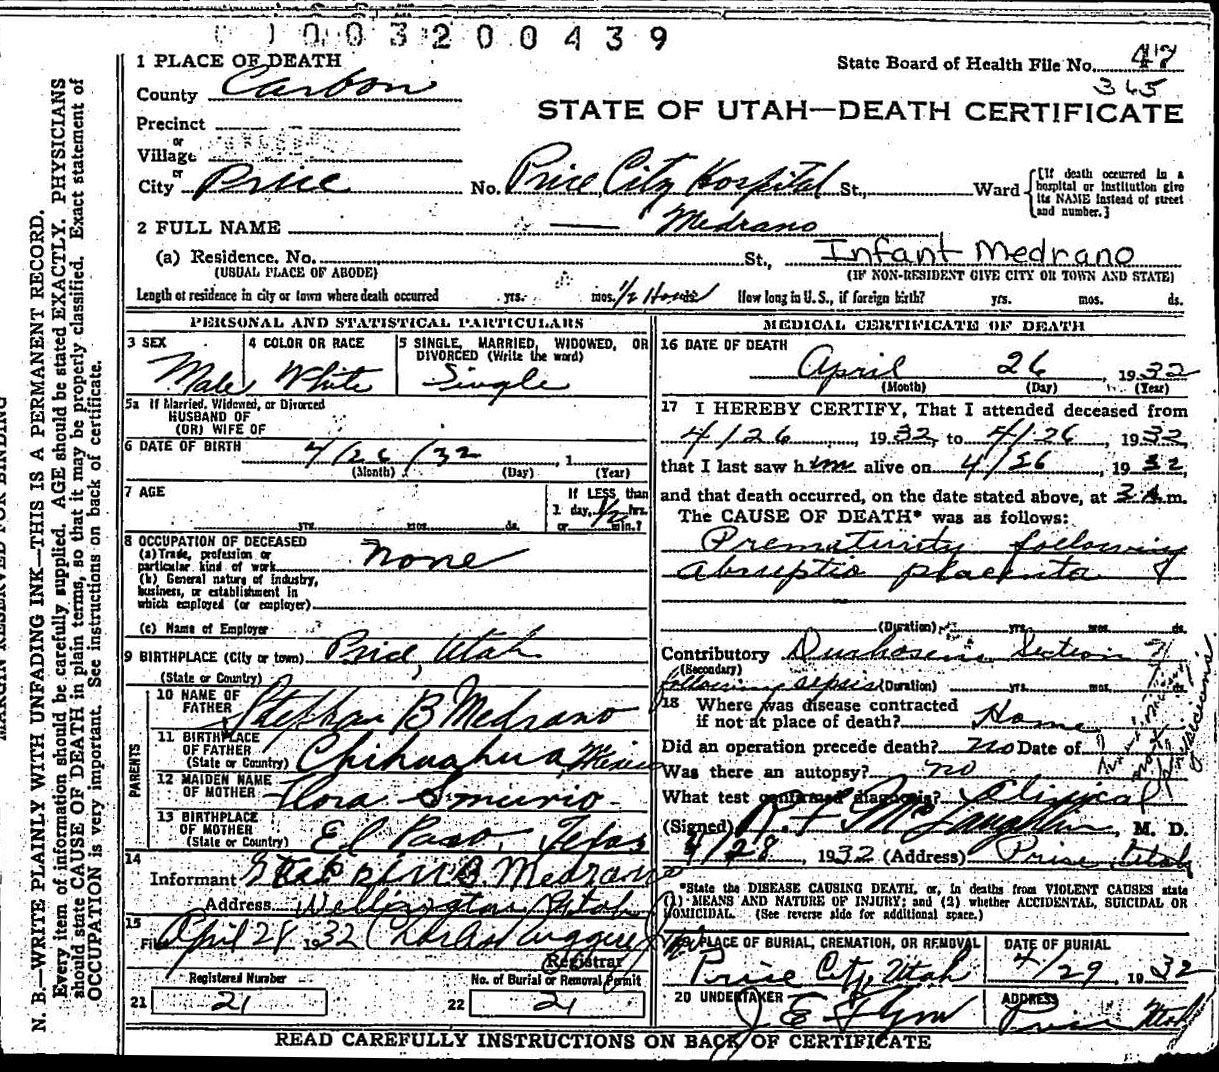 003200439
1 PLACE OF DEATH
State Board of Health File No. 47
365
County Carbon
STATE OF UTAH—DEATH CERTIFICATE
Precinct
or
Village
or
City Price No. Price City Hospital St., Ward
[If death occurred in a
hospital or institution give
its NAME instead of street
and number.]
2 FULL NAME — Medrano
(a) Residence. No. St., Infant Medrano
(USUAL PLACE OF ABODE) (IF NON-RESIDENT GIVE CITY OR TOWN AND STATE)
Length of residence in city or town where death occurred yrs. mos. 1/2 Hours How long in U.S., if foreign birth? yrs. mos. ds.
PERSONAL AND STATISTICAL PARTICULARS
3 SEX
Male
4 COLOR OR RACE
White
5 SINGLE, MARRIED, WIDOWED, OR
DIVORCED (Write the word)
Single
5a If Married, Widowed, or Divorced
HUSBAND OF
(OR) WIFE OF
6 DATE OF BIRTH 4/26/32, 1
(Month) (Day) (Year)
7 AGE
yrs. mos. ds.
If LESS than
1 day, 1/2 hrs.
or min.?
8 OCCUPATION OF DECEASED
(a) Trade, profession or
particular kind of work none
(b) General nature of industry,
business, or establishment in
which employed (or employer)
(c) Name of Employer
9 BIRTHPLACE (City or town) Price, Utah
(State or Country)
PARENTS
10 NAME OF
FATHER Stephan B Medrano
11 BIRTHPLACE
OF FATHER
(State or Country) Chihuahua, Mexico
12 MAIDEN NAME
OF MOTHER Flora
13 BIRTHPLACE
OF MOTHER
(State or Country) El Paso, Texas
14
Informant B. Medrano
Address Wellington Utah
15
Filed April 28 1932
Registrar
Registered Number
21 21
No. of Burial or Removal Permit
22 21
MEDICAL CERTIFICATE OF DEATH
16 DATE OF DEATH
April 26, 1932
(Month) (Day) (Year)
17 I HEREBY CERTIFY, That I attended deceased from
4/26, 1932, to 4/26, 1932
that I last saw him alive on 4/26, 1932,
and that death occurred, on the date stated above, at 3 A.m.
The CAUSE OF DEATH* was as follows:
Prematurity following
Abruptio placenta
(Duration) yrs. mos. ds.
Contributory Section
(Secondary)
following sepsis (Duration) yrs. mos. ds.
18 Where was disease contracted
if not at place of death? Home
Did an operation precede death? no Date of
Was there an autopsy? no
What test confirmed diagnosis? Clinical
(Signed) R. F. McLaughlin, M. D.
4/28, 1932 (Address) Price Utah
*State the DISEASE CAUSING DEATH, or, in deaths from VIOLENT CAUSES state
(1) MEANS AND NATURE OF INJURY; and (2) whether ACCIDENTAL, SUICIDAL OR
HOMICIDAL. (See reverse side for additional space.)
19 PLACE OF BURIAL, CREMATION, OR REMOVAL
Price City, Utah
DATE OF BURIAL
4/29, 1932
20 UNDERTAKER
J. E. Flynn
ADDRESS
Price Utah
READ CAREFULLY INSTRUCTIONS ON BACK OF CERTIFICATE
MARGIN RESERVED FOR BINDING
N. B.—WRITE PLAINLY WITH UNFADING INK—THIS IS A PERMANENT RECORD.
Every item of information should be carefully supplied. AGE should be stated EXACTLY. PHYSICIANS
should state CAUSE OF DEATH in plain terms, so that it may be properly classified. Exact statement of
OCCUPATION is very important. See instructions on back of certificate.